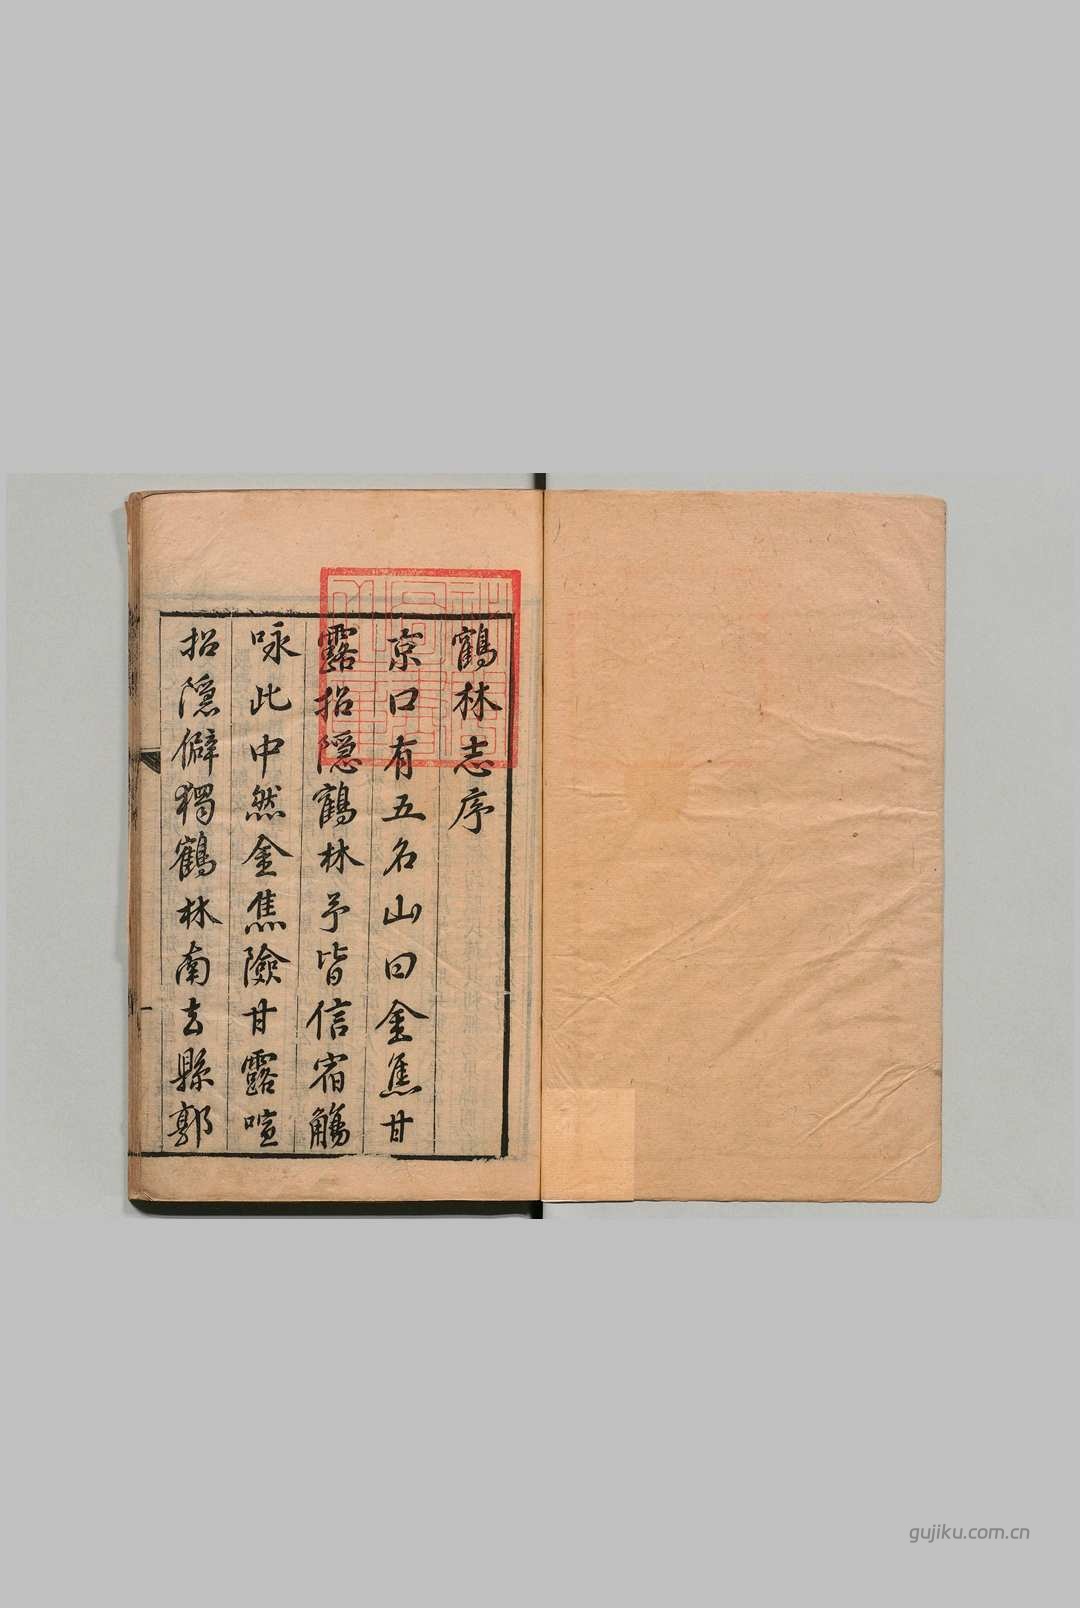 鶴林志序
京口有五名山曰金焦甘
露招隱鶴林予皆信宿觴
咏此中然金焦險甘露喧
招隱僻獨鶴林南去縣郭
gujiku.com.cn